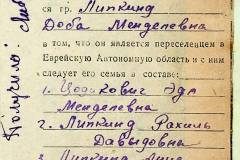 ся гр. Липкинд
Доба Менделевна
в том, что он является переселенцем в
Еврейскую Автономную область и с ним
следует его семья в составе:
1. Цодикович Эда
Менделевна
2. Липкинд Рахиль
Давыдовна
3. Липкинд
Получила: